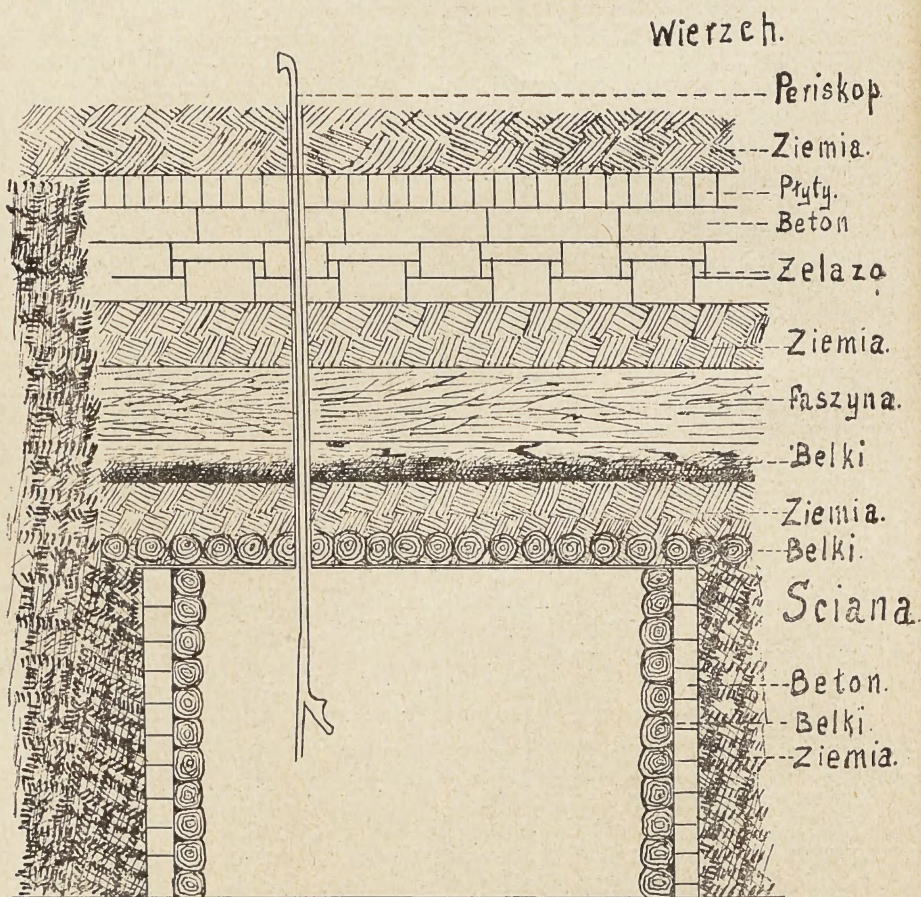 Wierzch.
Periskop
Ziemia.
Płyty.
Beton
Żelazo
Ziemia.
Faszyna.
Belki
Ziemia.
Belki.
Sciana
Beton.
Belki.
Ziemia.